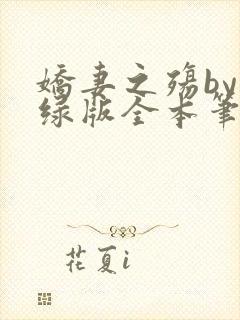 嬌妻之殤by
绿版全本筆
花夏i